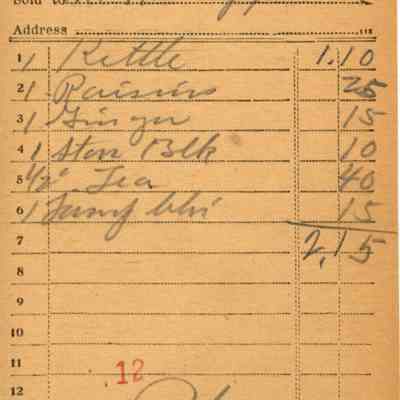 Sold to
Address
1 1 Kettle 1.10
2 1 Raisins 25
3 1 Ginger 15
4 1 Stov Blk 10
5 1/2 Tea 40
6 1 Lamp 15
7 2.15
8
9
10
11
12
12